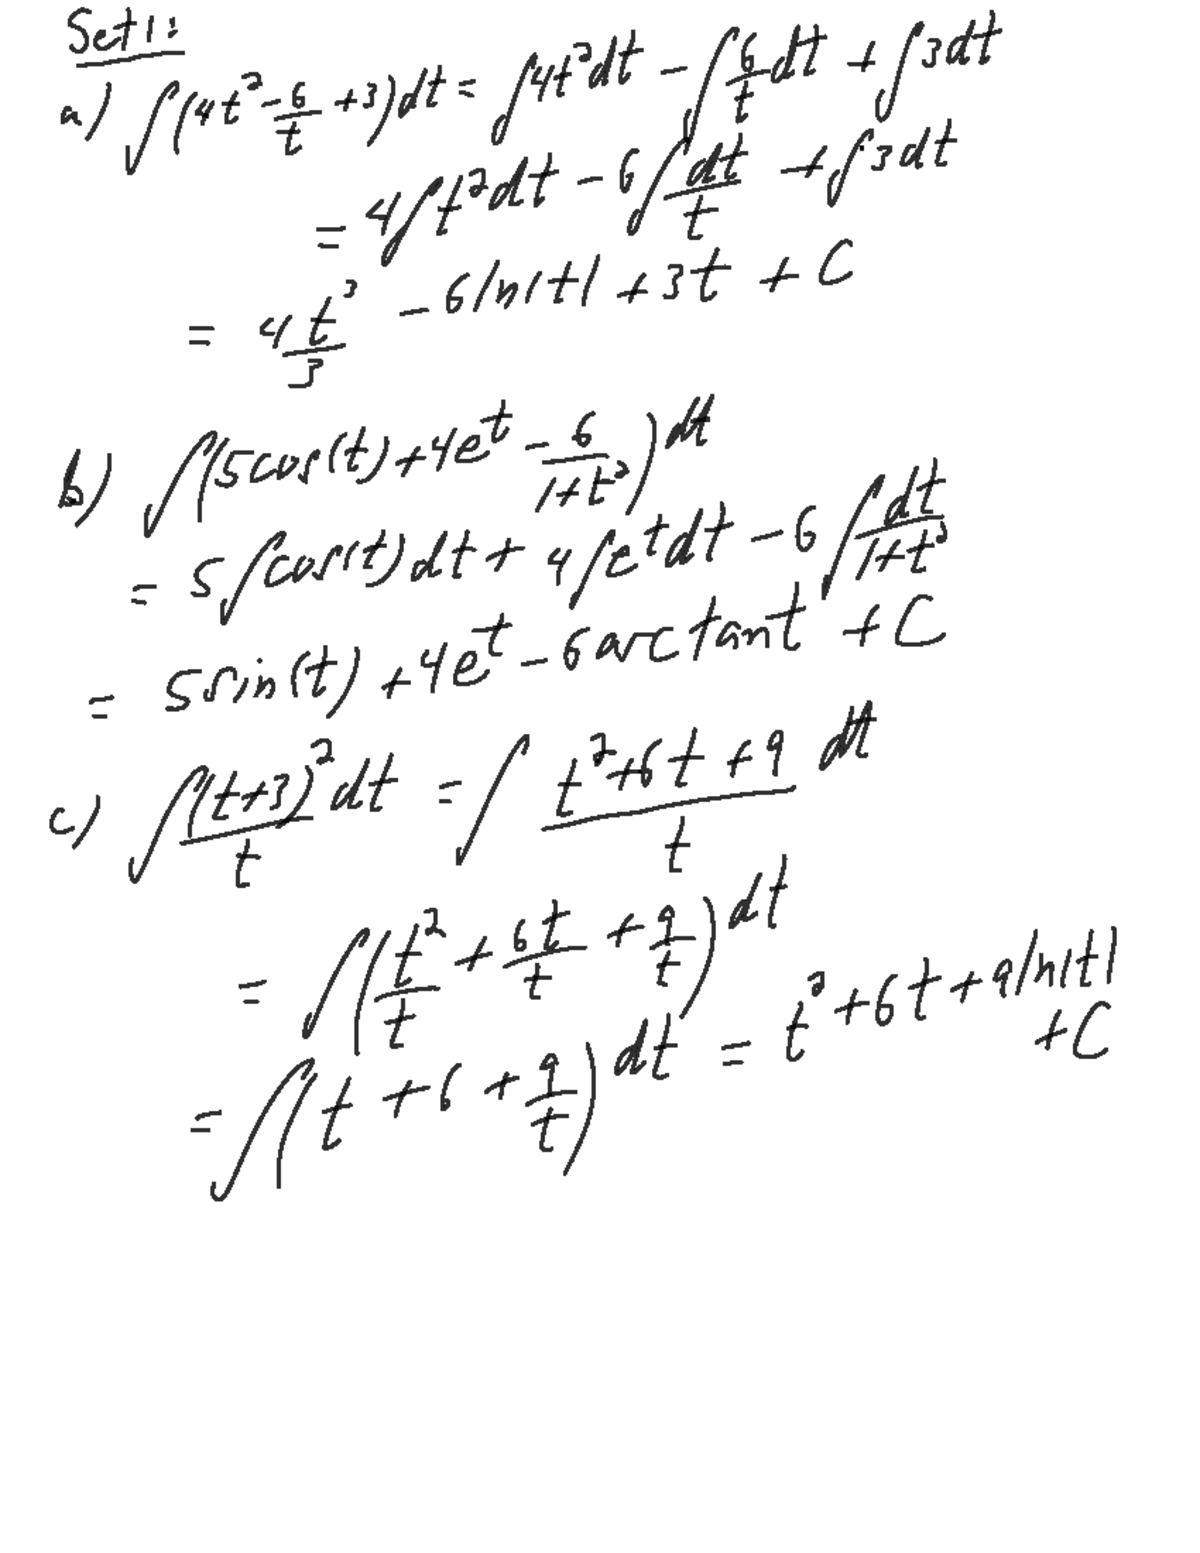 Set 1:
a) ∫(4t² - 6/t + 3)dt = ∫4t²dt - ∫6/t dt + ∫3dt
= 4∫t²dt - 6∫dt/t + ∫3dt
= 4 t³/3 - 6ln|t| + 3t + C
b) ∫(5cos(t) + 4e^t - 6/(1+t²))dt
= 5∫cos(t)dt + 4∫e^t dt - 6∫dt/(1+t²)
= 5sin(t) + 4e^t - 6arctant + C
c) ∫(t+3)²/t dt = ∫(t²+6t+9)/t dt
= ∫(t²/t + 6t/t + 9/t)dt
= ∫(t + 6 + 9/t)dt = t² + 6t + 9ln|t|
+ C